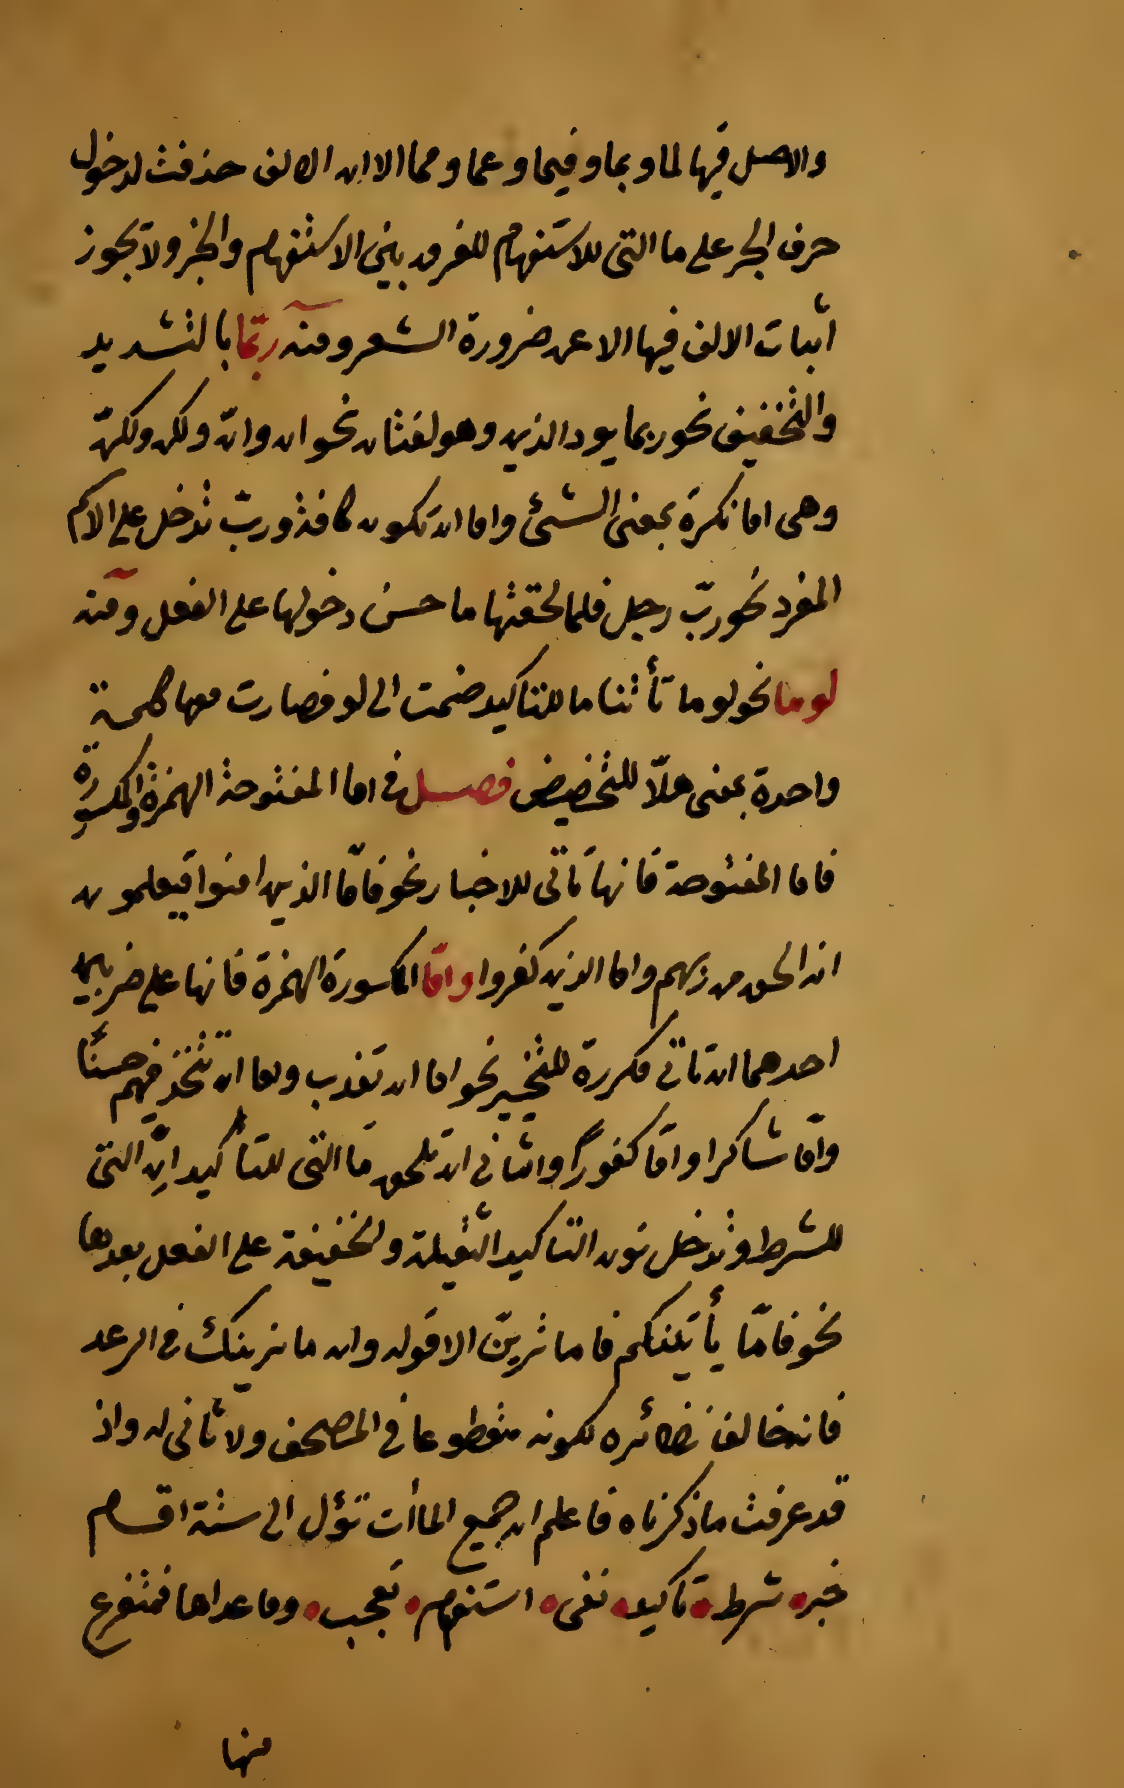 والاصل فيها لما وبما وفيما وعما ومما الا ان الالف حذفت لدخول
حرف الجر على ما التى للاستفهام للفرق بين الاستفهام والخبر ولا يجوز
اثبات الالف فيها الا عن ضرورة الشعر ومنه ربّما بالتشديد
والتخفيف نحو ربما يود الذين وهو لغتان نحو ان وانّ ولكن ولكنّ
وهى اما نكرة بمعنى الشئ واما ان تكون كافة وربّ تدخل على الاسم
المفرد نحو ربّ رجل فلما لحقتها ما حسن دخولها على الفعل ومنه
لوما نحو لوما تأتنا ما للتاكيد ضمت الى لو فصارت معها كلمة
واحدة بمعنى هلّا للتخضيض فصل فى اما المفتوحة الهمزة والمكسورة
فاما المفتوحة فانها تأتى للاخبار نحو فامّا الذين امنوا فيعلمون
انه الحق من ربهم واما الذين كفروا وامّا المكسورة الهمزة فانها على ضربين
احدهما ان تاتى مكررة للتخيير نحو اما ان تعذب واما ان تتخذ فيهم حسنًا
وامّا شاكرا وامّا كفورًا والثانى ان تلحق ما التى للتأكيد اِنِ التى
للشرط وتدخل نون التاكيد الثقيلة والخفيفة على الفعل بعدها
نحو فامّا يأتينكم فاما ترينّ الا قوله وان ما نرينك فى الرعد
فانه خالف نظائره لكونه مقطوعا فى المصحف ولا ثانى له واذ
قد عرفت ما ذكرناه فاعلم ان جميع المأات تؤل الى ستة اقسام
خبر شرط تاكيد نفى استفهام تعجب وما عداها فمتفرع
منها